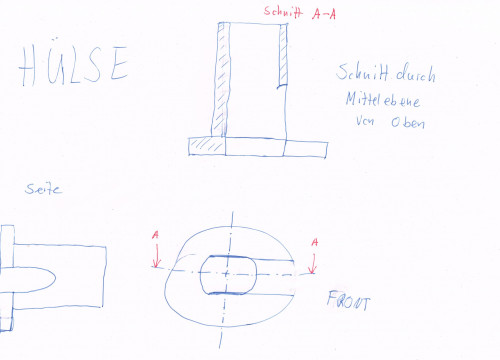 Schnitt A-A
HÜLSE
Schnitt durch
Mittelebene
von Oben
Seite
A
A
FRONT